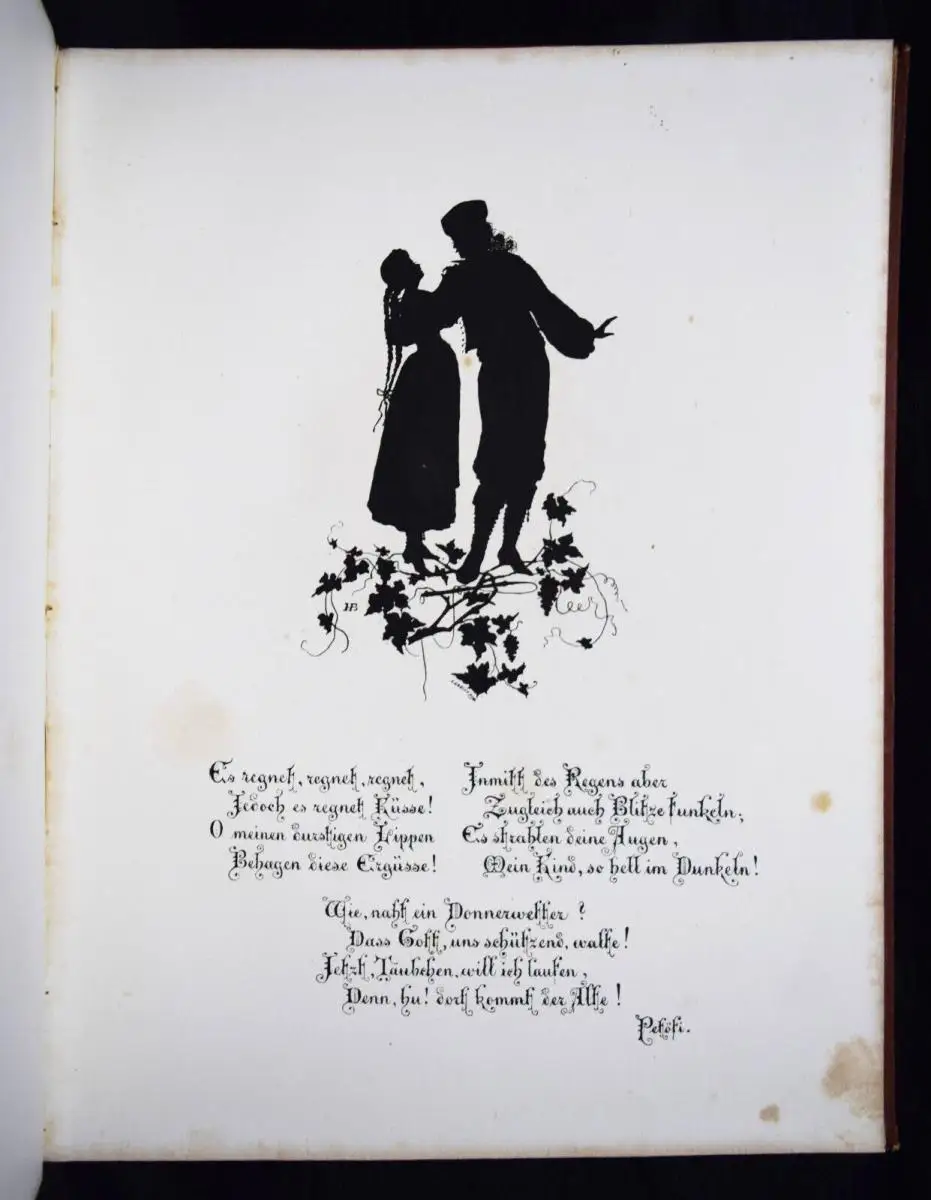 HB
Es regnet, regnet, regnet,
Jedoch es regnet Küsse!
O meinen durstigen Lippen
Behagen diese Ergüsse!
Inmitt des Regens aber
Zugleich auch Blitze funkeln;
Es strahlen deine Augen,
Mein Kind, so hell im Dunkeln!
Wie, naht ein Donnerwetter?
Dass Gott, uns schützend, walte!
Jetzt, Täubchen, will ich laufen,
Denn, hu! dort kommt der Alte!
Petöfi.